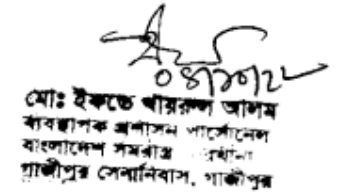 মোঃ ইফতে খায়রুল আলম
ব্যবস্থাপক প্রশাসন পার্সোনেল
বাংলাদেশ সমরাস্ত্র
গাজীপুর সেনানিবাস, গাজীপুর